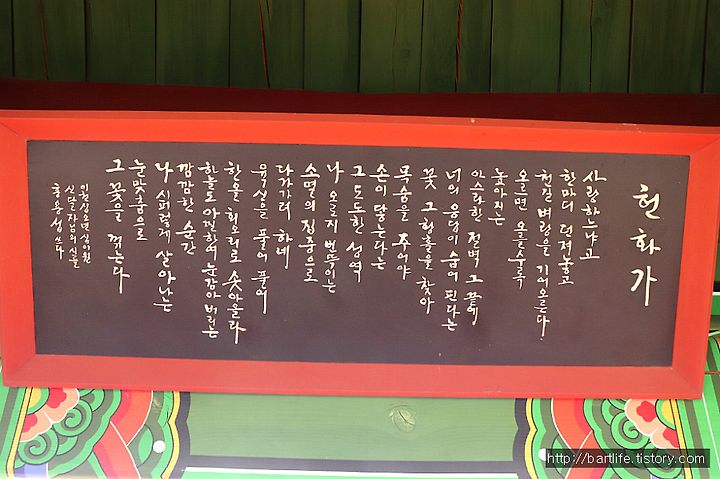 헌화가
사랑하느냐고
한마디 던져놓고
천길 벼랑을 기어오른다.
오르면 오를수록
높아지는
아스라한 절벽 그 끝에
너의 응답이 숨어 핀다는
꽃 그 황홀을 찾아
목숨을 주어야
손이 닿는다는
그 도도한 성역
나 오로지 번뜩이는
소멸의 집중으로
다가가려 하네
육신을 풀어 풀어
한올 회오리로 솟아올라
하늘도 아찔하여 눈감아버리는
깜깜한 순간
나 시퍼렇게 살아나는
눈맞춤으로
그 꽃을 꺾는다
신달자님의 시를
쓰다
http://bartlife.tistory.com